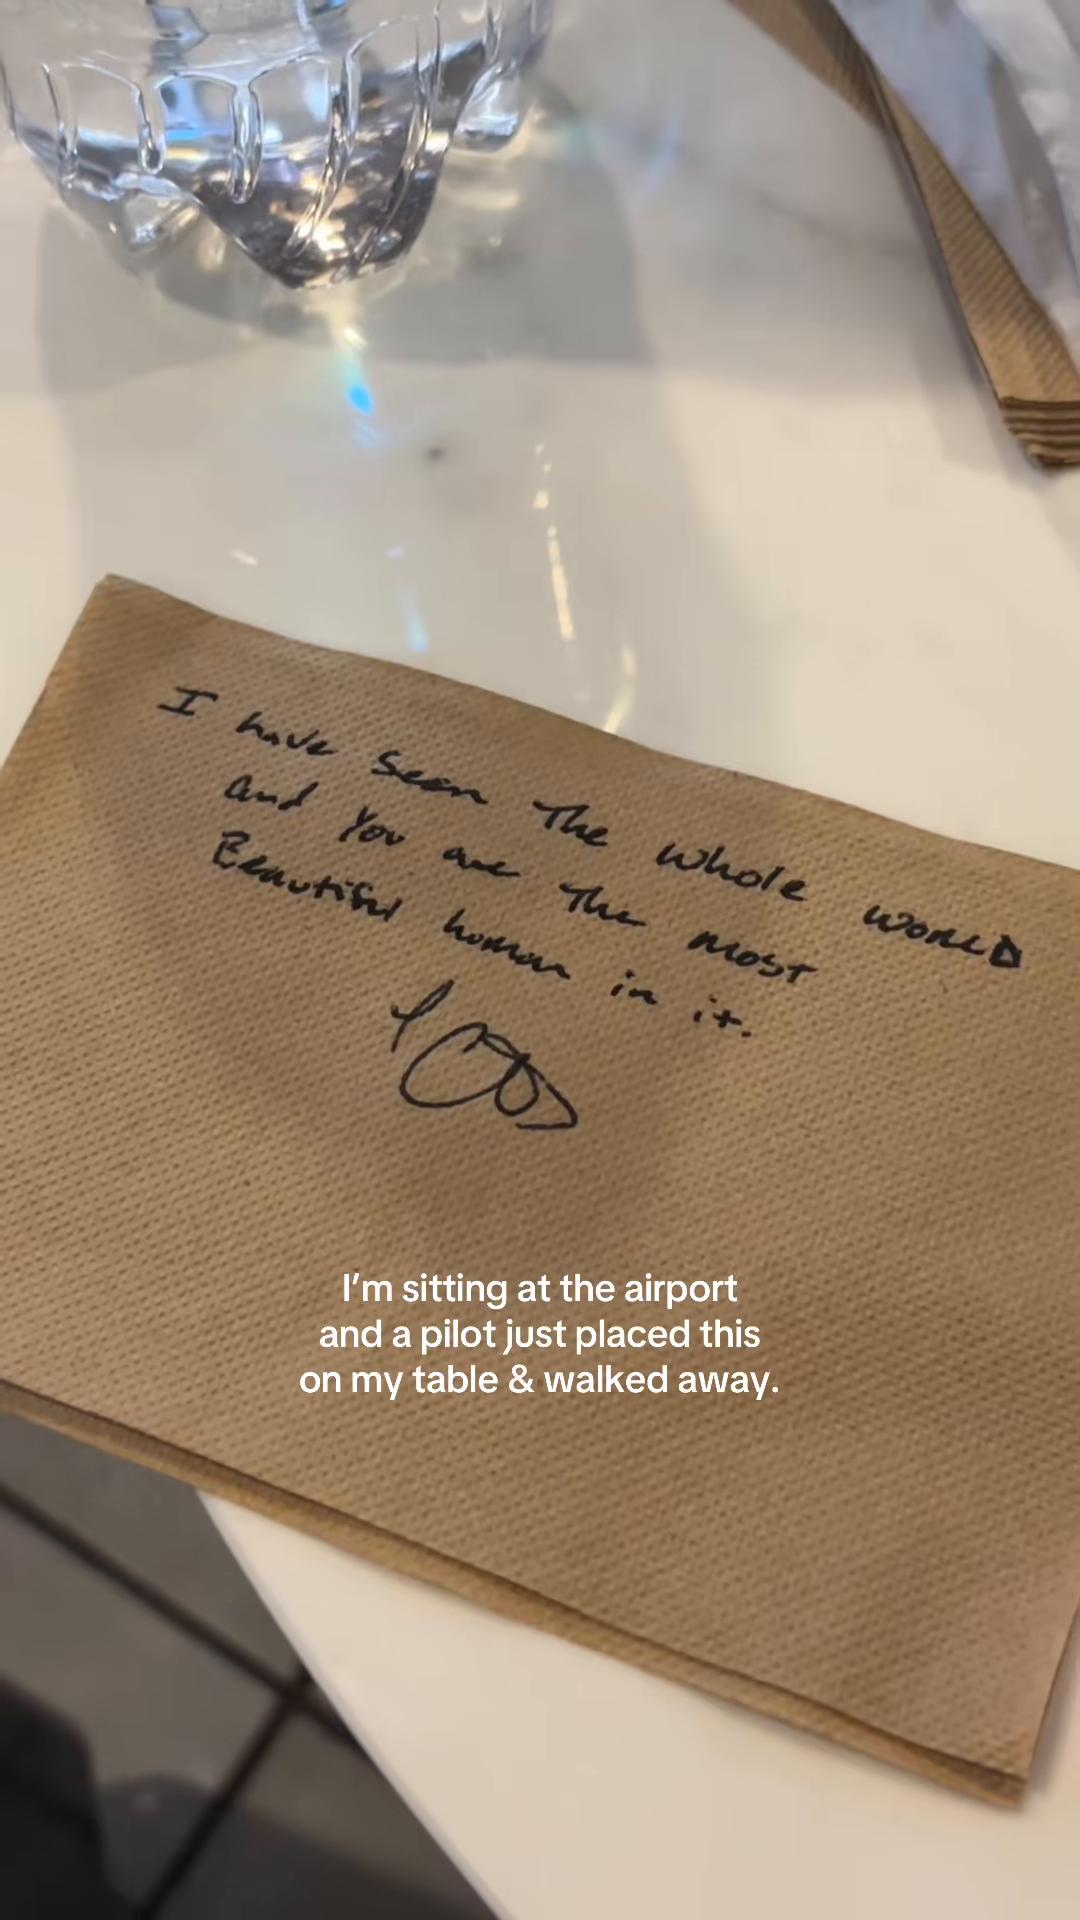 I have seen The whole world
and You are The most
Beautiful human in it.
I'm sitting at the airport
and a pilot just placed this
on my table & walked away.